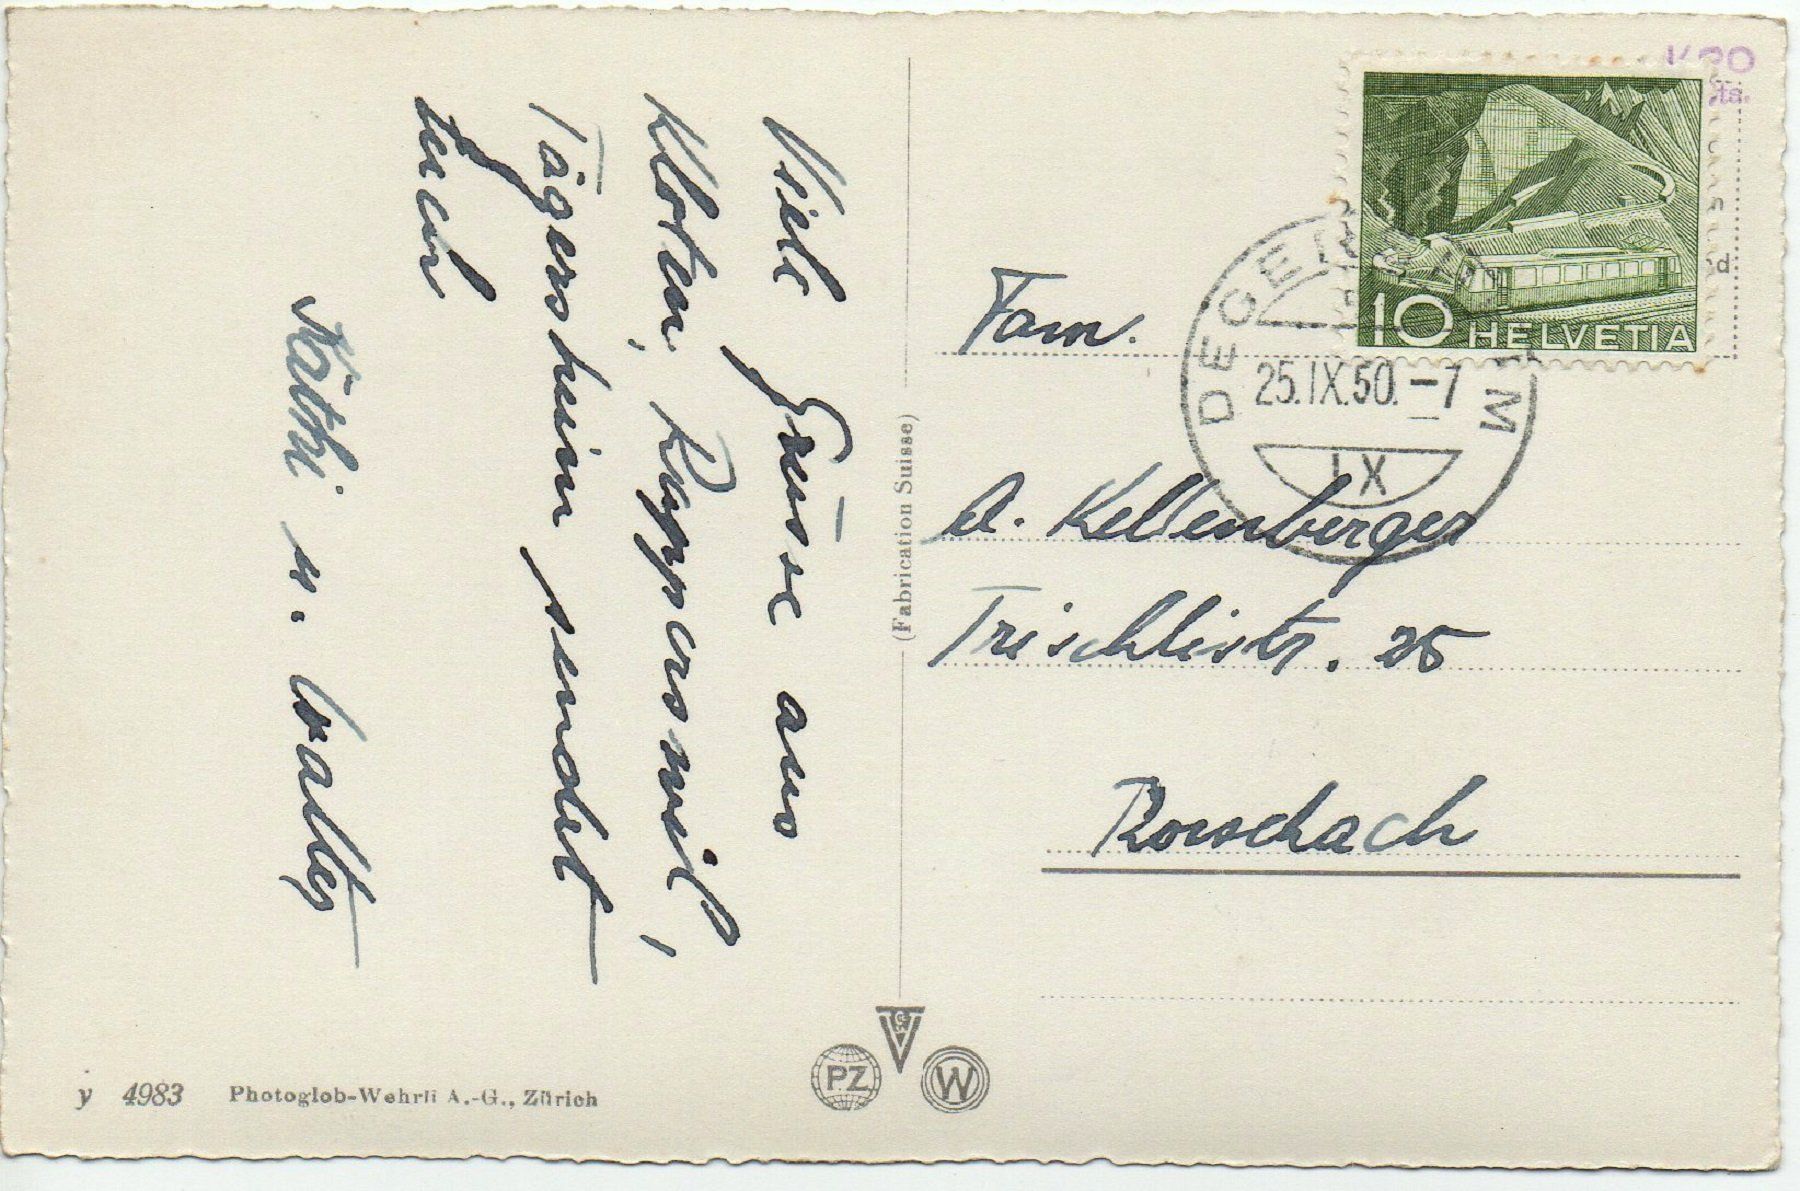 Viele Grüsse aus
Kloten, Rapperswil,
Tägerschein sendet
Euch
Käthi u. Walter
(Fabrication Suisse)
y 4983 Photoglob-Wehrli A.-G., Zürich
PZ
W
10 HELVETIA
DEGE M
25.IX.50.-7
IX
Fam.
A. Kellenberger
Trischlistr. 25
Rorschach